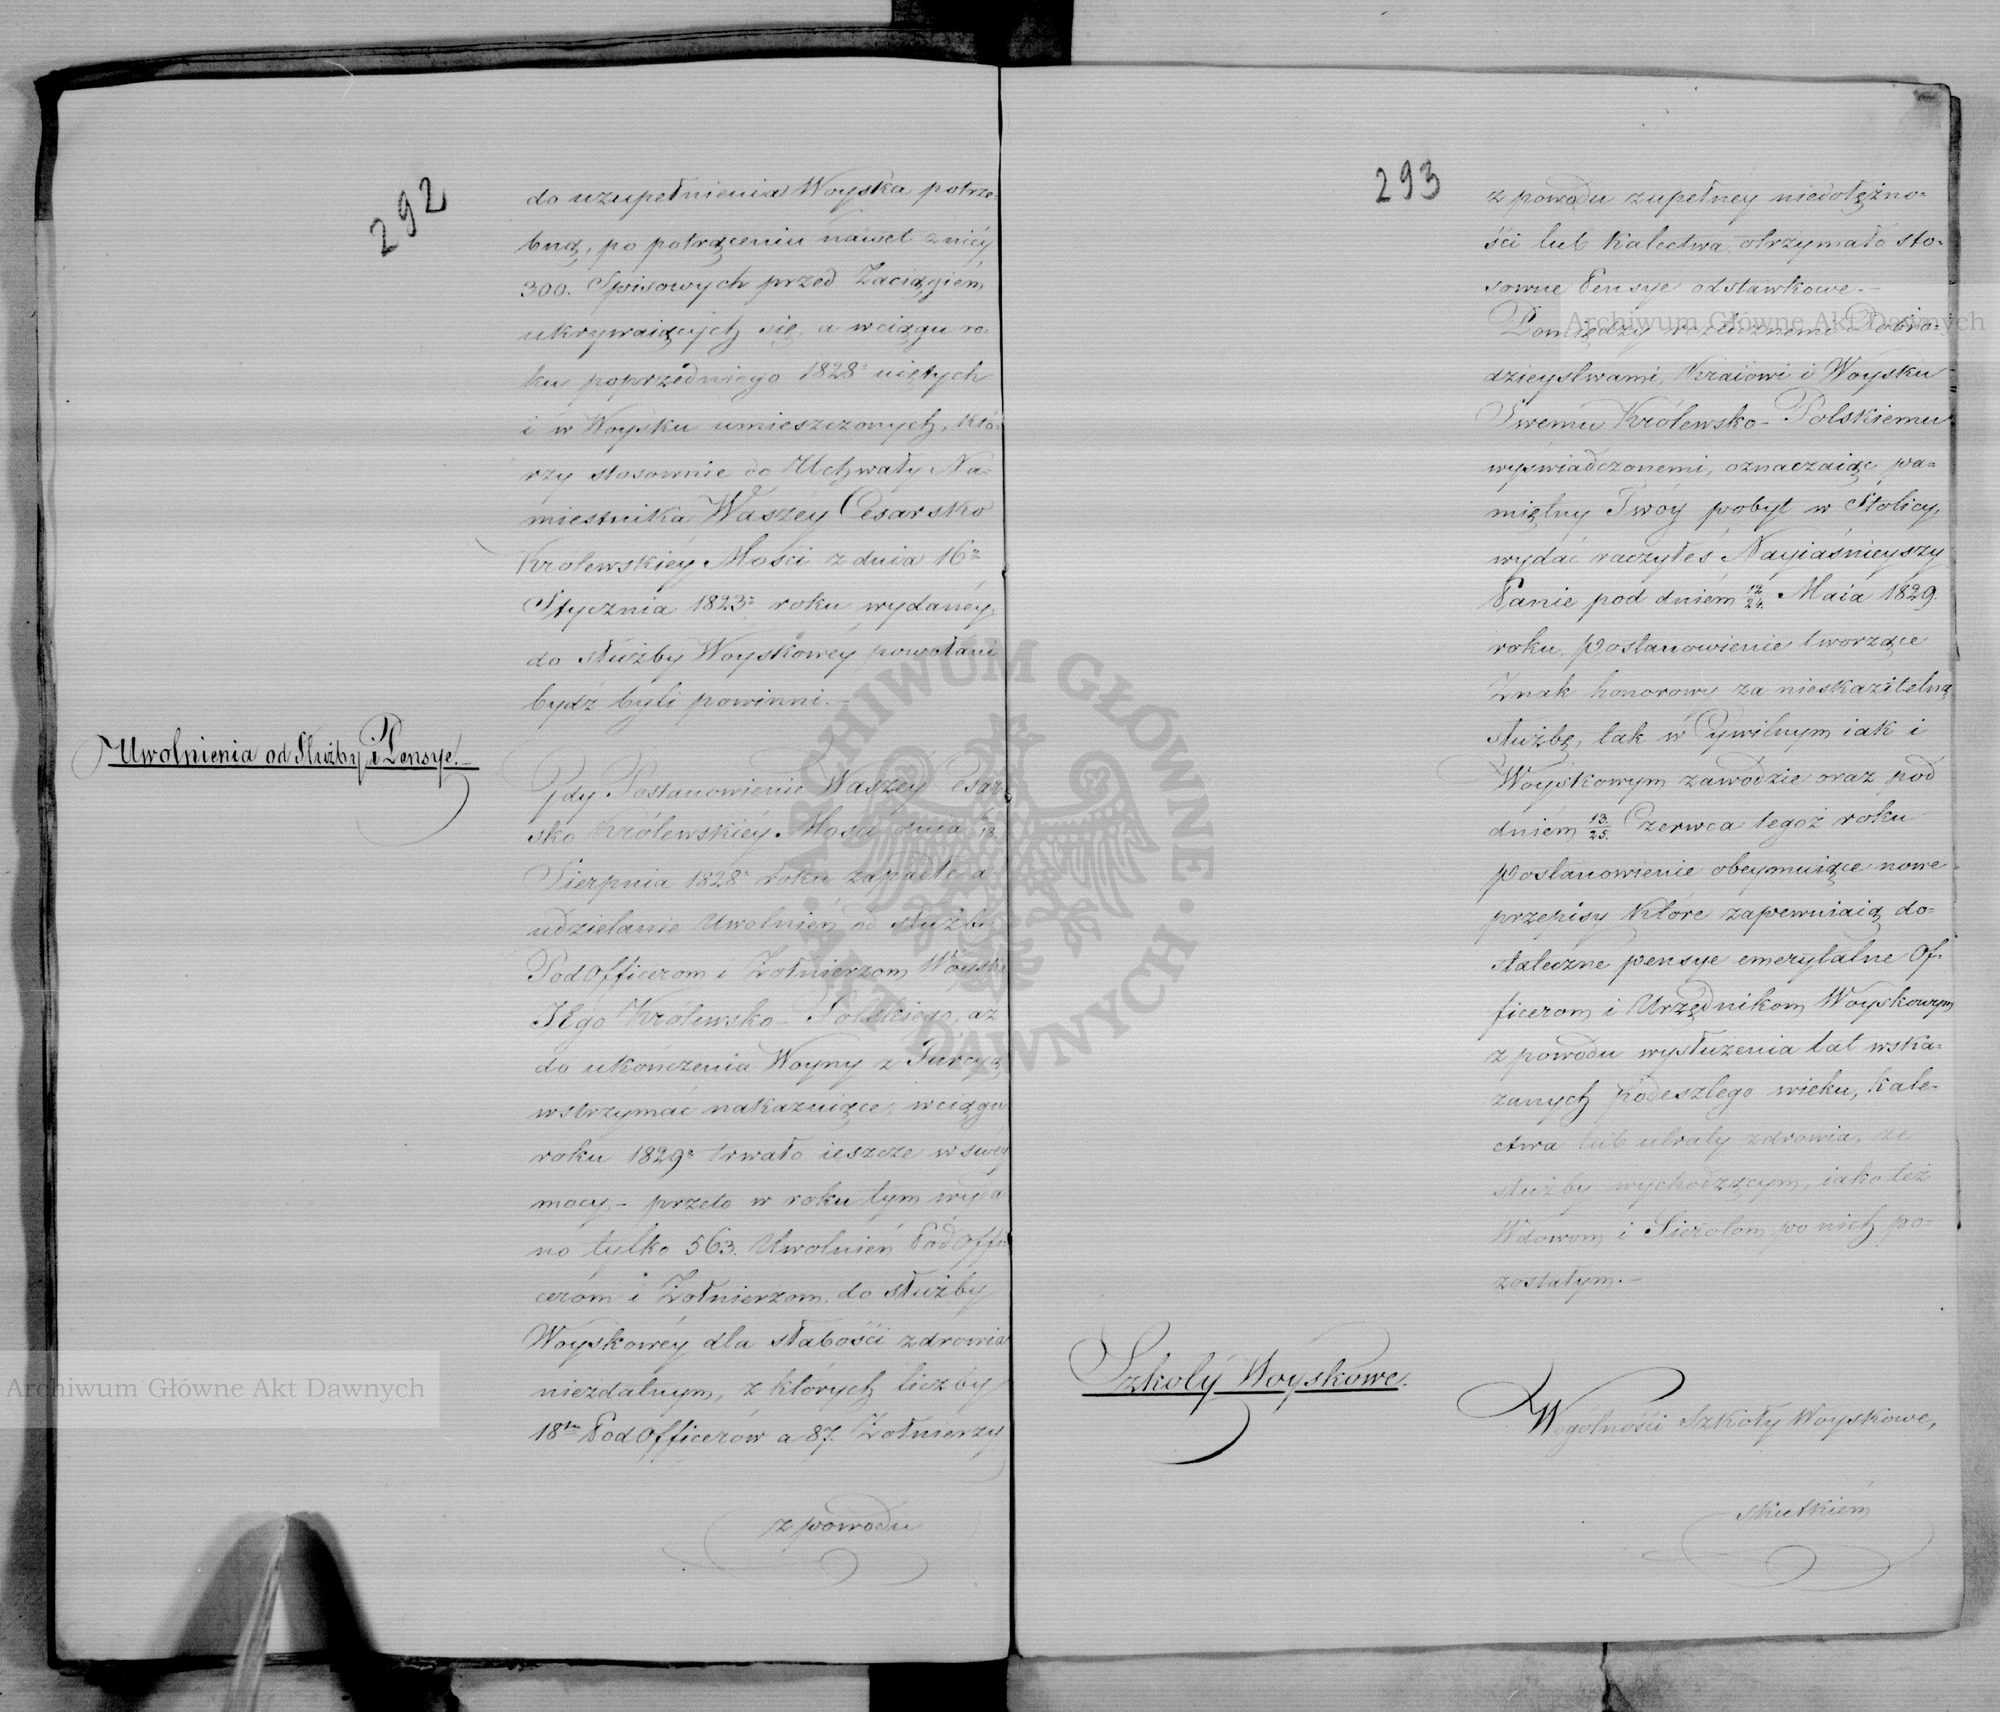 292
do uzupełnienia Woyska potrze-
bną, po potrąceniu nawet z niéy
300. Spisowych przed Zaciągiém
ukrywaiących się, a w ciągu ro-
ku poprzedniego 1828º uiętych
i w Woysku umieszczonych, któ-
rzy stosownie do Uchwały Na-
miestnika Waszéy Cesarsko
Królewskiéy Mości z dnia 16º
Stycznia 1823º roku wydanéy,
do służby Woyskowéy powołani
bydź byli powinni.-
Uwolnienia od Służby i Pensye.-
Gdy Postanowienie Waszéy Cesar-
sko Królewskiéy Mości dnia 6/18.
Sierpnia 1828º roku zapadłe a
udzielanie Uwolnień od służby
PodOfficerom i Żołnierzom Woyska
JEgo Królewsko Polskiego, aż
do ukończenia Woyny z Turcyą
wstrzymać nakazuiące, w ciągu
roku 1829º trwało ieszcze w swéy
mocy,- przeto w roku tym wyda-
no tylko 563. Uwolnień PodOffi-
cerom i Żołnierzom do służby
Woyskowéy dla słabości zdrowia
niezdatnym, z których liczby
18tu PodOfficerów a 87. Żołnierzy
z powodu
293
z powodu zupełney niedołężno-
ści lub Kalectwa, otrzymało sto-
sowne Pensye odstawkowe.-
Pomiędzy rozlicznemi Dobro-
dzieystwami, Kraiowi i Woysku
Swemu Królewsko-Polskiemu
wyświadczonemi, oznaczaiąc pa-
miętny Twóy pobyt w Stolicy,
wydać raczyłeś Nayiaśnieyszy
Panie pod dniém 12/24. Maia 1829.
roku, postanowienie tworzące
Znak honorowy za nieskazitelną
służbę, tak w Cywilnym iak i
Woyskowym zawodzie oraz pod
dniém 13/25. Czerwca tegoż roku
postanowienie obeymuiące nowe
przepisy które zapewniaią do-
stateczne pensye emerytalne Of-
ficerom i Urzędnikom Woyskowym
z powodu wysłużenia lat wska-
zanych podeszłego wieku, kale-
ctwa lub utraty zdrowia, ze
służby wychodzącym, iako też
Wdowom i Sierotom po nich po-
zostałym.-
Szkoły Woyskowe.
W ogólności Szkoły Woyskowe,
skutkiém
Archiwum Główne Akt Dawnych
Archiwum Główne Akt Dawnych
· ARCHIWUM GŁÓWNE · AKT DAWNYCH